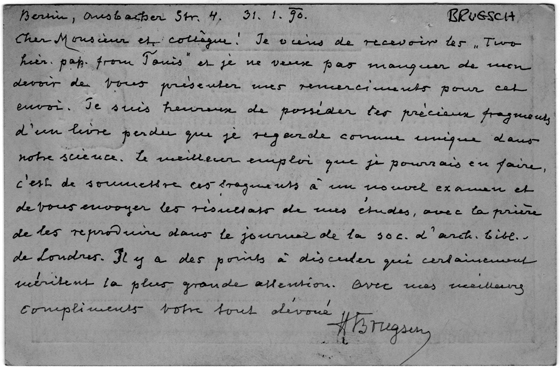 Berlin, Ansbacher Str. 4. 31.1.90. BRUGSCH
Cher Monsieur et collègue! Je viens de recevoir les „Two
hier. pap. from Tanis" et je ne veux pas manquer de mon
devoir de vous présenter mes remerciments pour cet
envoi. Je suis heureux de posséder ces précieux fragments
d'un livre perdu que je regarde comme unique dans
notre science. Le meilleur emploi que je pourrais en faire,
c'est de soumettre ces fragments à un nouvel examen et
de vous envoyer les résultats de mes études, avec la prière
de les reproduire dans le journal de la soc. d'arch. bibl.
de Londres. Il y a des points à discuter qui certainement
méritent la plus grande attention. Avec mes meilleurs
compliments votre tout dévoué
HBrugsch